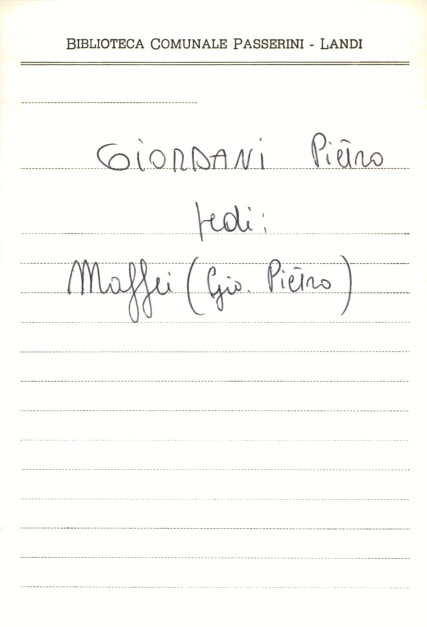 BIBLIOTECA COMUNALE PASSERINI - LANDI
GIORDANI Pietro
Vedi:
Maffei (Gio. Pietro)